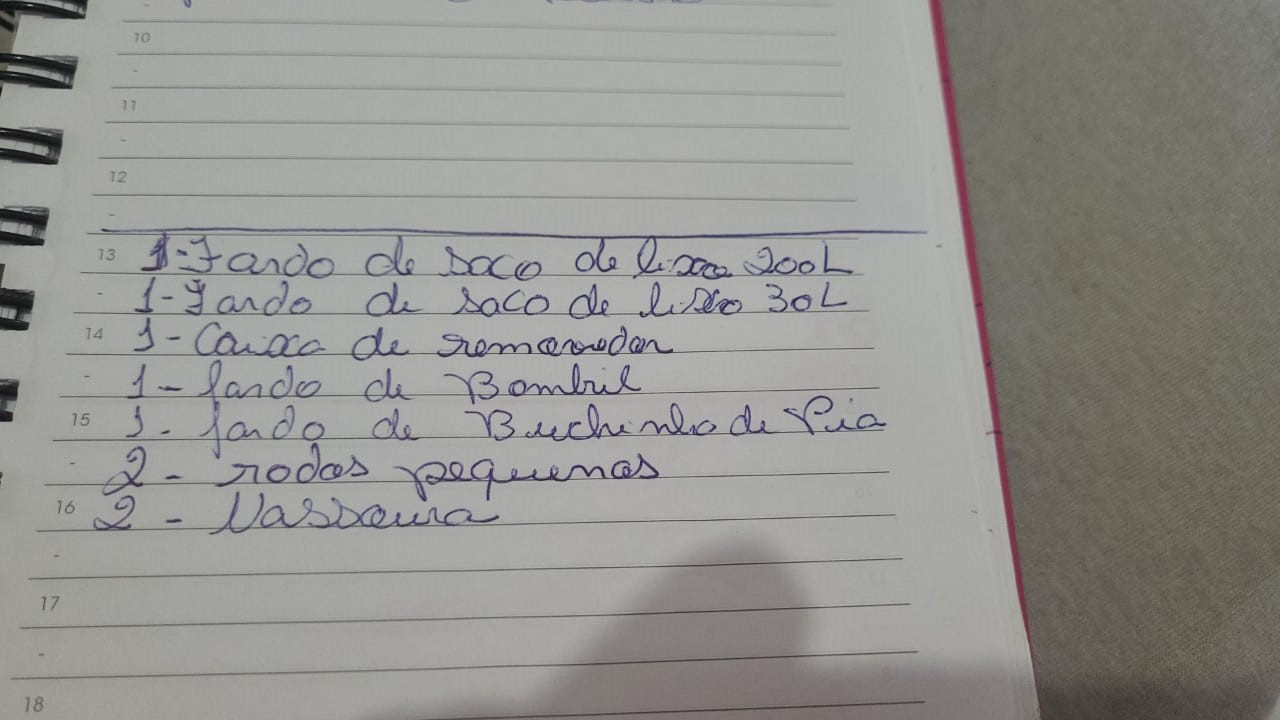 10
11
12
13 1-Fardo de saco de lixo 200L
1-Fardo de saco de lixo 30L
14 1-Caixa de
1-fardo de Bombril
15 1-fardo de Buchinha de Pia
2-rodos pequenos
16 2-Vassoura
17
18